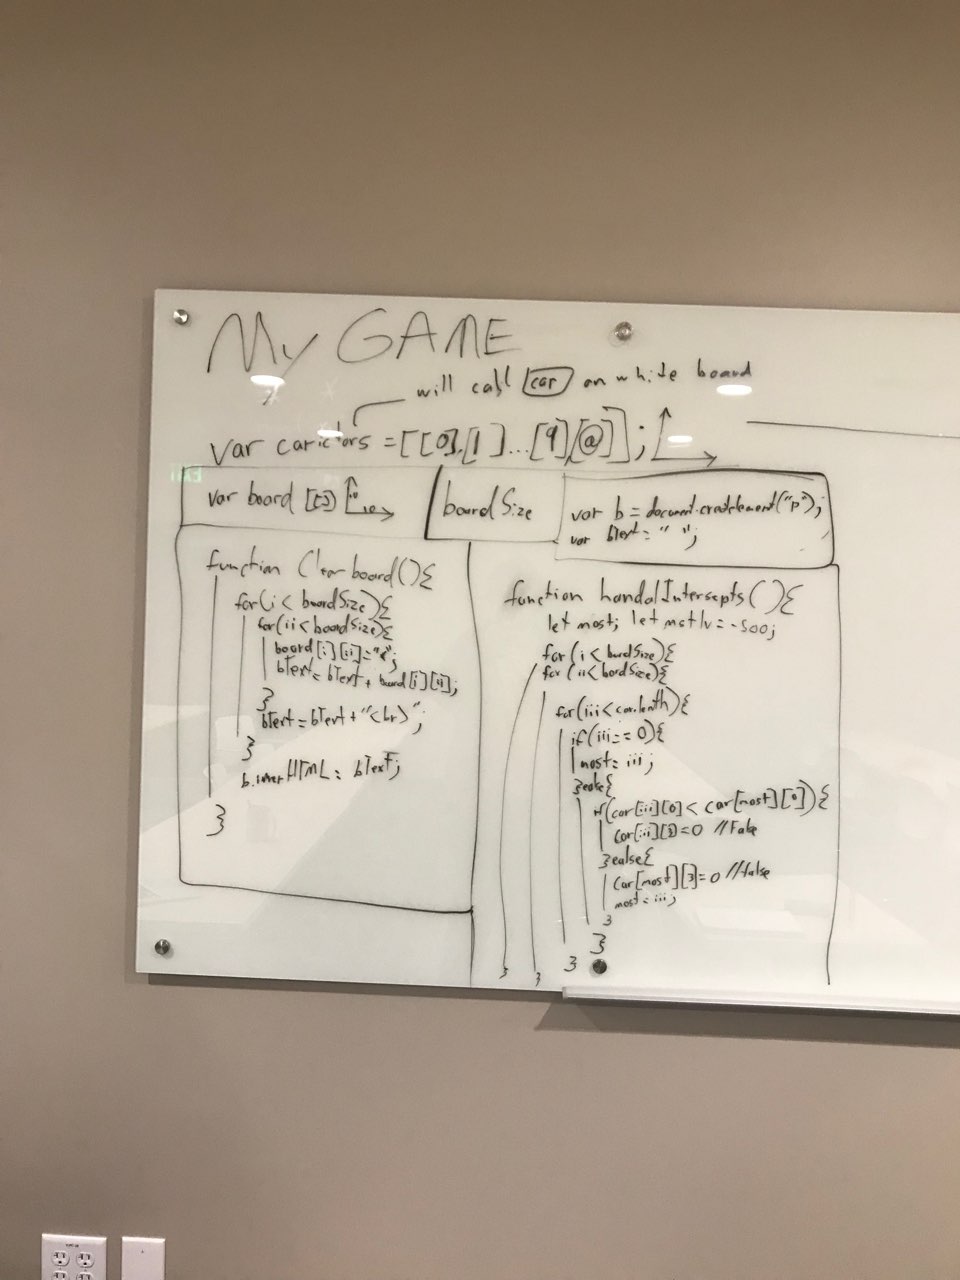 My GAME
will call car on white board
var carictors = [[0],[1]...[9],[@]];
var board [[]]
boardSize
var b = document.creatElement("p");
var bText = " ";
function Clearboard(){
for(i < boardSize){
for(ii < boardSize){
board[i][ii]=" ";
bText = bText + board[i][ii];
}
bText = bText + "<br>";
}
b.innerHTML = bText;
}
function handalIntersepts(){
let most; let mstlv = -500;
for(i < bordSize){
for(ii < bordSize){
for(iii < car.lenth){
if(iii == 0){
most = iii;
}ealse{
if(car[iii][0] < car[most][0]){
car[iii][3]=0 //False
}ealse{
car[most][3]=0 //false
most = iii;
}
}
}
}
}